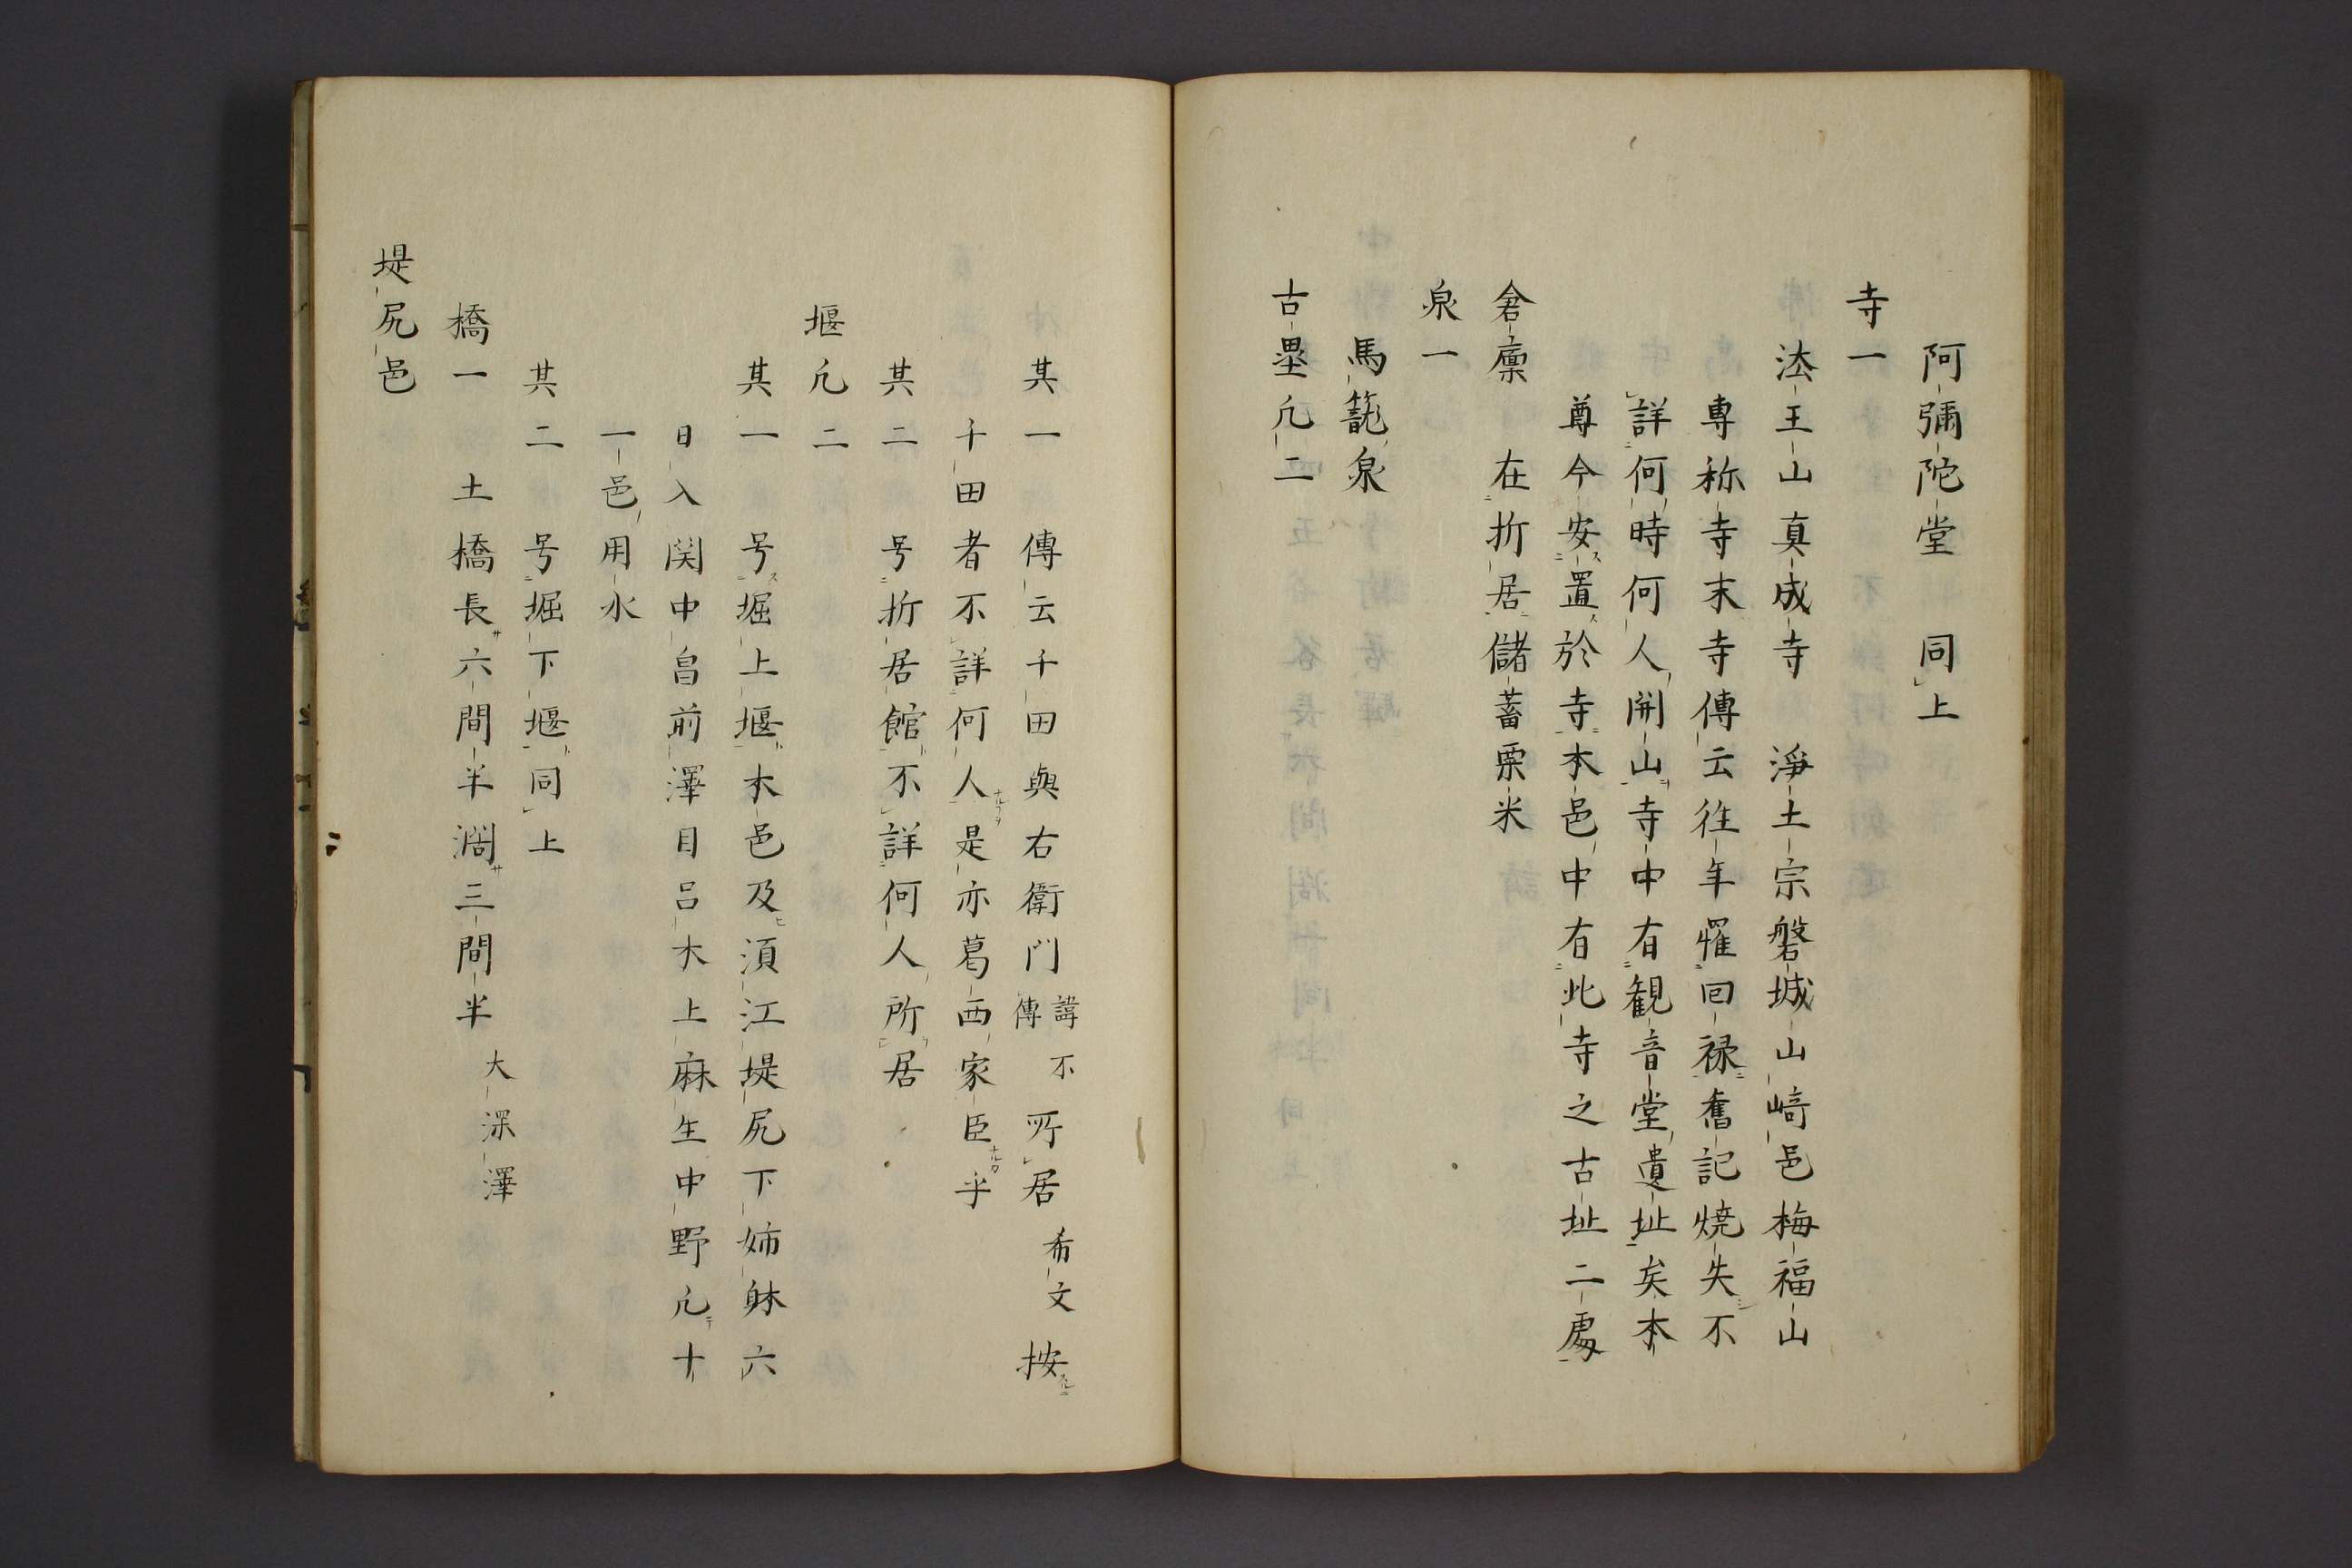 阿彌陀堂　同上
寺一
法王山真成寺　淨土宗磐城山﨑邑梅福山
専称寺末寺傳云往年罹回禄舊記焼失不
詳何時何人開山寺中有観音堂遺址矣本
尊今安置於寺本邑中有此寺之古址二處
倉廩　在折居儲蓄粟米
泉一
馬籠泉
古壘凢二
其一　傳云千田與右衛門諱不傳所居希文按
千田者不詳何人是亦葛西家臣乎
其二　号折居館不詳何人所居
堰凢二
其一　号堀上堰本邑及須江堤尻下姉躰六
日入関中畠前澤目呂木上麻生中野凢十
一邑用水
其二　号堀下堰同上
橋一　土橋長六間半濶三間半大深澤
堤尻邑